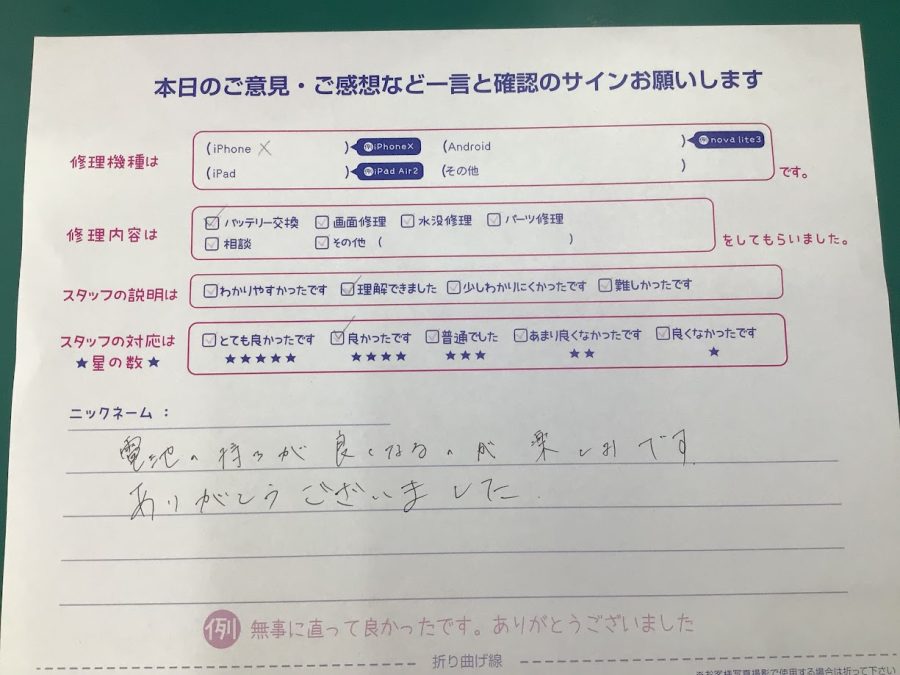 本日のご意見・ご感想など一言と確認のサインお願いします
修理機種は
(iPhone X ) iPhoneX (Android ) nova lite3
(iPad ) iPad Air2 (その他 ) です。
修理内容は
バッテリー交換 画面修理 水没修理 パーツ修理
相談 その他 ( ) をしてもらいました。
スタッフの説明は わかりやすかったです 理解できました 少しわかりにくかったです 難しかったです
スタッフの対応は とても良かったです 良かったです 普通でした あまり良くなかったです 良くなかったです
★星の数★ ★★★★★ ★★★★ ★★★ ★★ ★
ニックネーム：
電池の持ちが良くなるのが楽しみです
ありがとうございました.
例 無事に直って良かったです。ありがとうございました
折り曲げ線
※お客様写真撮影で使用する場合は折って下さい